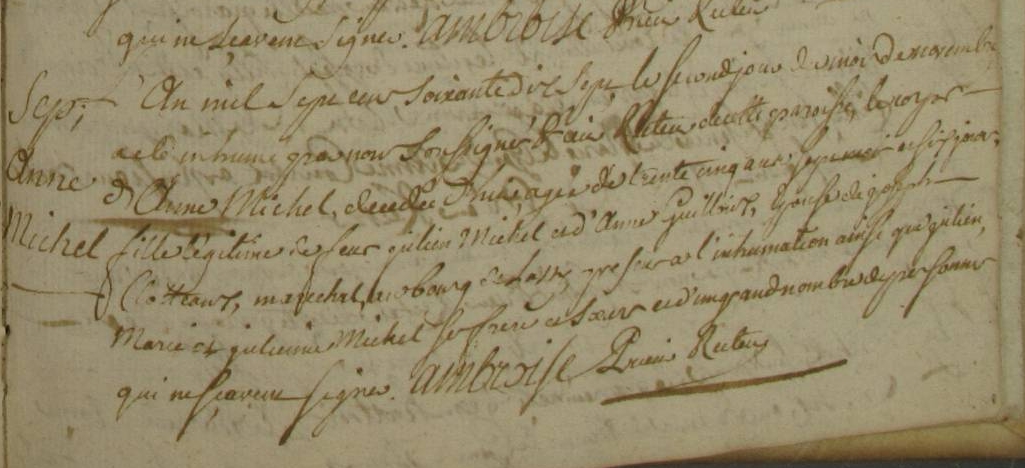 qui ne scavent signer. ambroise Prieur Recteur
Sep; L'An mil sept cens soixante dix sept le second jour du mois de novembre
a été inhumé par nous soussigné Recteur de cette paroisse, le corps
Anne d'Anne Michel, decedée agée de trente cinq ans et six jours,
Michel fille légitime de feu julien Michel et d'Anne Epouse de joseph
marechal, au bourg de presens a l'inhumation ainsi que julien,
Marie et julienne Michel ses frere et sœurs et d'un grand nombre de personnes
qui ne scavent signer. ambroise Prieur Recteur